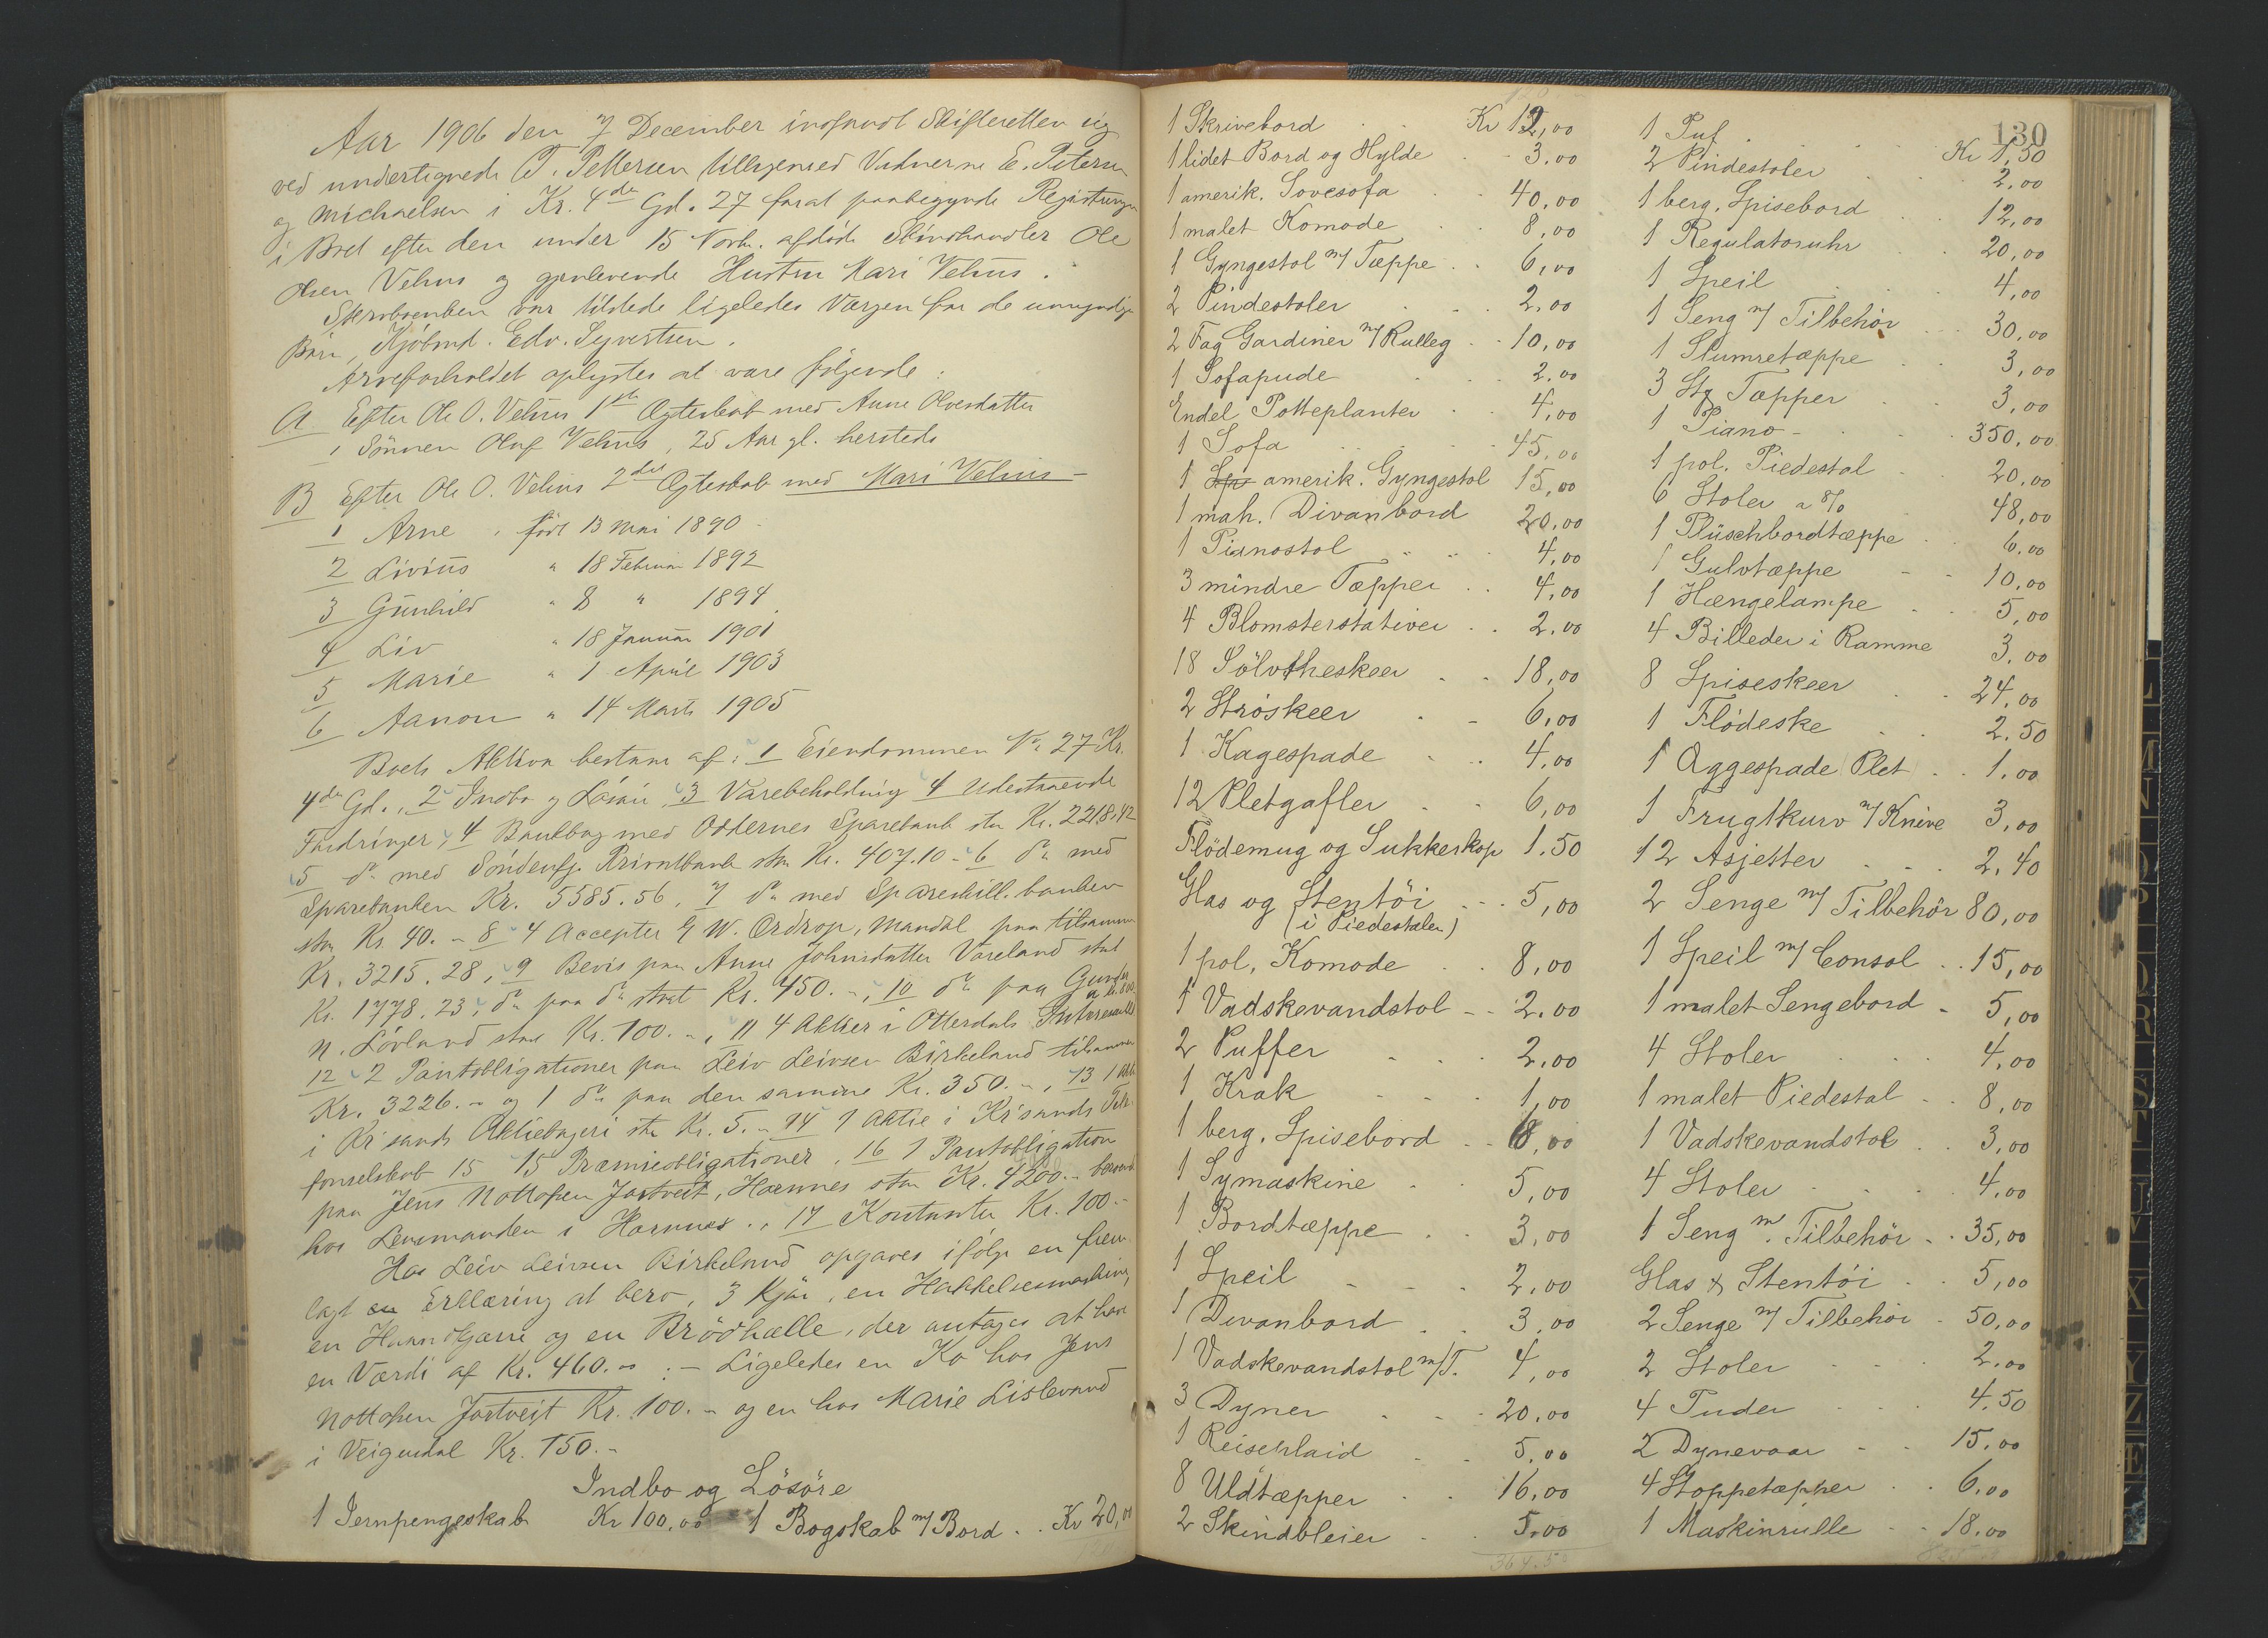 Aar 1906 den 7 December indfandt Skifteretten sig
ved undertegnede T. Pettersen tilligemed Vidnerne E. Petersen
og Michaelsen i Kr. 4de Gd. 27 forat paabegynde Registrering
i Boet efter den under 15 Novbr. afdöde Skindhandler Ole
Olsen Vehus og gjenlevende Hustru Mari Vehus.
Stervboenken var tilstede ligeledes Værgen for de umyndige
Börn, Kjöbmd. Edv. Syvertsen.
Arveforholdet oplystes at være følgende:
A Efter Ole O. Vehus 1ste Ægteskab med Anne Olvesdatter
1 Sönnen Oluf Vehus, 25 Aar gl. hersteds
B Efter Ole O. Vehus 2det Ægteskab med Mari Vehus -
1 Arne, födt 13 Mai 1890 -
2 Livius " 18 Februar 1892
3 Gunhild " 8 " 1894
4 Liv " 18 Januar 1901
5 Marie " 1 April 1903
6 Aanon " 14 Marts 1905
Boets Aktiva bestaar af: 1 Eiendommen No 27 Kr.
4de Gd., 2 Indbo og Lösöre, 3 Varebeholdning 4 Udestaaende
Fordringer, 4 Bankbog med Oddernes Sparebank stor Kr. 2218,42
5 do med Söndenfj. Privatbank stor Kr. 407.10 - 6 do med
Sparebanken Kr. 5585.56, 7 do med Spareskill. banken
stor Kr. 40. - 8 4 Accepter G W. Ordrop, Mandal paa tilsammen
Kr. 3215.28, 9 Bevis paa Anne Johnsdatter Vareland stort
Kr. 1778.23, do paa do stort Kr. 450. -, 10 do paa Gunder
N. Lövland stor Kr. 100. -, 11 4 Aktier i Otterdals
12 2 Pantobligationer paa Leiv Leivsen Birkeland tilsammen
Kr. 3226. - og 1 do paa den samme Kr. 350. -, 13 1 Akt.
i Kr'sands Aktiebryggeri stor Kr. 5. - 14 1 Aktie i Kr'sands Tele-
fonselskab 15 15 Præmieobligationer, 16 1 Pantobligation
paa Jens Nottosen Jortveit, Hornnes stor Kr. 4200. - beroende
hos Lensmanden i Hornnes., 17 Kontanter Kr. 100. -
Hos Leiv Leivsen Birkeland opgaves ifölge en frem-
lagt Erklæring at bero, 3 Kjör, en Hakkelsesmaskine,
en Haandkjærre og en Brödhælle, der antages at have
en Værdi af Kr. 460. - : - Ligeledes en Ko hos Jens
Nottosen Jortveit Kr. 100. - og en hos Marie Lislevand
i Veigusdal Kr. 150. -
Indbo og Lösöre
1 Jernpengeskab Kr 100,00 1 Bogskab m/Bord . . Kr 20,00
130
1 Skrivebord . . Kr 12,00
1 lidet Bord og Hylde . - 3.00
1 amerik. Sovesofa . . 40,00
1 malet Komode . . 8,00
1 Gyngestol m/ Tæppe . . 6,00
2 Pindestoler . . . 2,00
2 Fag Gardiner m/ Rulleg . . 10,00
1 Sofapude . . . 2.00
Endel Potteplanter . . 4,00
1 Sofa . . . 45,00
1 Sp amerik. Gyngestol 15,00
1 mah. Divanbord 20,00
1 Pianostol . . . 4,00
3 mindre Tæpper . . 4,00
4 Blomsterstativer . . 2.00
18 Sölvtheskeer . . 18,00
2 Ströskeer . - 6,00
1 Kagespade . . . 4,00
12 Pletgafler . . 6,00
Flödemug og Sukkerkop 1.50
Glas og Stentöi . . . 5,00
(i Piedestalen)
1 pol. Komode . . 8,00
1 Vadskevandstol - . 2.00
2 Puffer . . . 2,00
1 Krak - . . 1,00
1 berg. Spisebord . - 8,00
1 Symaskine . . 5,00
1 Bordtæppe . . 3,00
1 Speil - - . 2,00
1 Divanbord . . 3,00
1 Vadskevandstol m/T. 4,00
3 Dyner . . . 20,00
1 Reiseplaid . . 5,00
8 Uldtæpper . . 16,00
2 Skindbleier . . 5.00
364.50
1 Puf . . Kr 1,50
2 Pindestoler . . 2,00
1 berg. Spisebord . . 12,00
1 Regulatoruhr . . 20,00
1 Speil . . . 4,00
1 Seng m/ Tilbehör . . . 30,00
1 Slumretæppe . . 3,00
3 Stk Tæpper . . 3,00
1 Piano - . . . 350,00
1 pol. Piedestal . 20,00
6 Stoler a 8/0 48,00
1 Plüschbordtæppe . 6,00
1 Gulvtæppe - - 10,00
1 Hængelampe . . 5,00
4 Billeder i Ramme 3.00
8 Spiseskeer . . 24,00
1 Flödeske . . 2.50
1 Æggespade Plet . . 1.00
1 Frugtkurv m/ Knive 3,00
12 Asjetter . . . 2,40
2 Senge m/ Tilbehör 80,00
1 Speil m/ Consol . . 15,00
1 malet Sengebord - 5,00
4 Stoler . . . 4,00
1 malet Piedestal - . 8,00
1 Vadskevandstol . . 3,00
4 Stoler - . . 4,00
1 Seng m. Tilbehör . . 35,00
Glas & Stentöi . . 5,00
2 Senge m/ Tilbehör . 50,00
2 Stoler - - - 2.00
4 Puder - - . 4,50
2 Dynevaar - . 15,00
4 Stoppetæpper . . 6,00
1 Maskinrulle - . 18,00